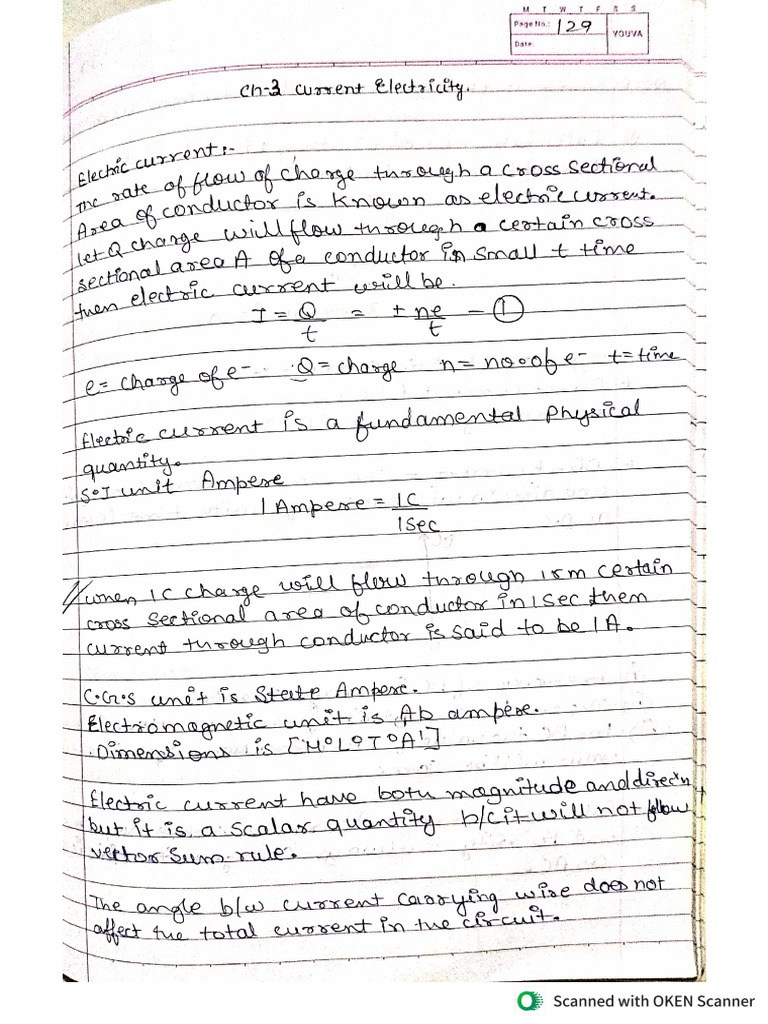 M T W T F S S
Page No.: 129
Date:
YOUVA
Ch-3 Current Electricity.
Electric current:-
The rate of flow of charge through a cross sectional
Area of conductor is known as electric current.
let Q charge will flow through a certain cross
sectional area A of a conductor in small t time
then electric current will be.
I = Q/t = ± ne/t - ①
e = charge of e- Q = charge n = no. of e- t = time
Electric current is a fundamental Physical
quantity.
S.I unit Ampere
1 Ampere = 1C/1Sec
// when 1C charge will flow through certain
cross sectional area of conductor in 1sec then
current through conductor is said to be 1A.
C.G.S unit is State Ampere.
Electromagnetic unit is Ab ampere.
Dimensions is [M⁰L⁰T⁰A¹]
Electric current have both magnitude and direcn
but it is a scalar quantity b/c it will not follow
vector sum rule.
The angle b/w current carrying wire does not
affect the total current in the circuit.
Scanned with OKEN Scanner